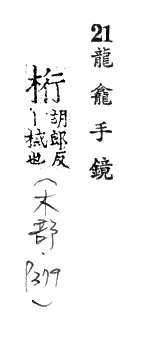 21龍龕手鏡
桁胡郎反
丨械也
(木部・P379)